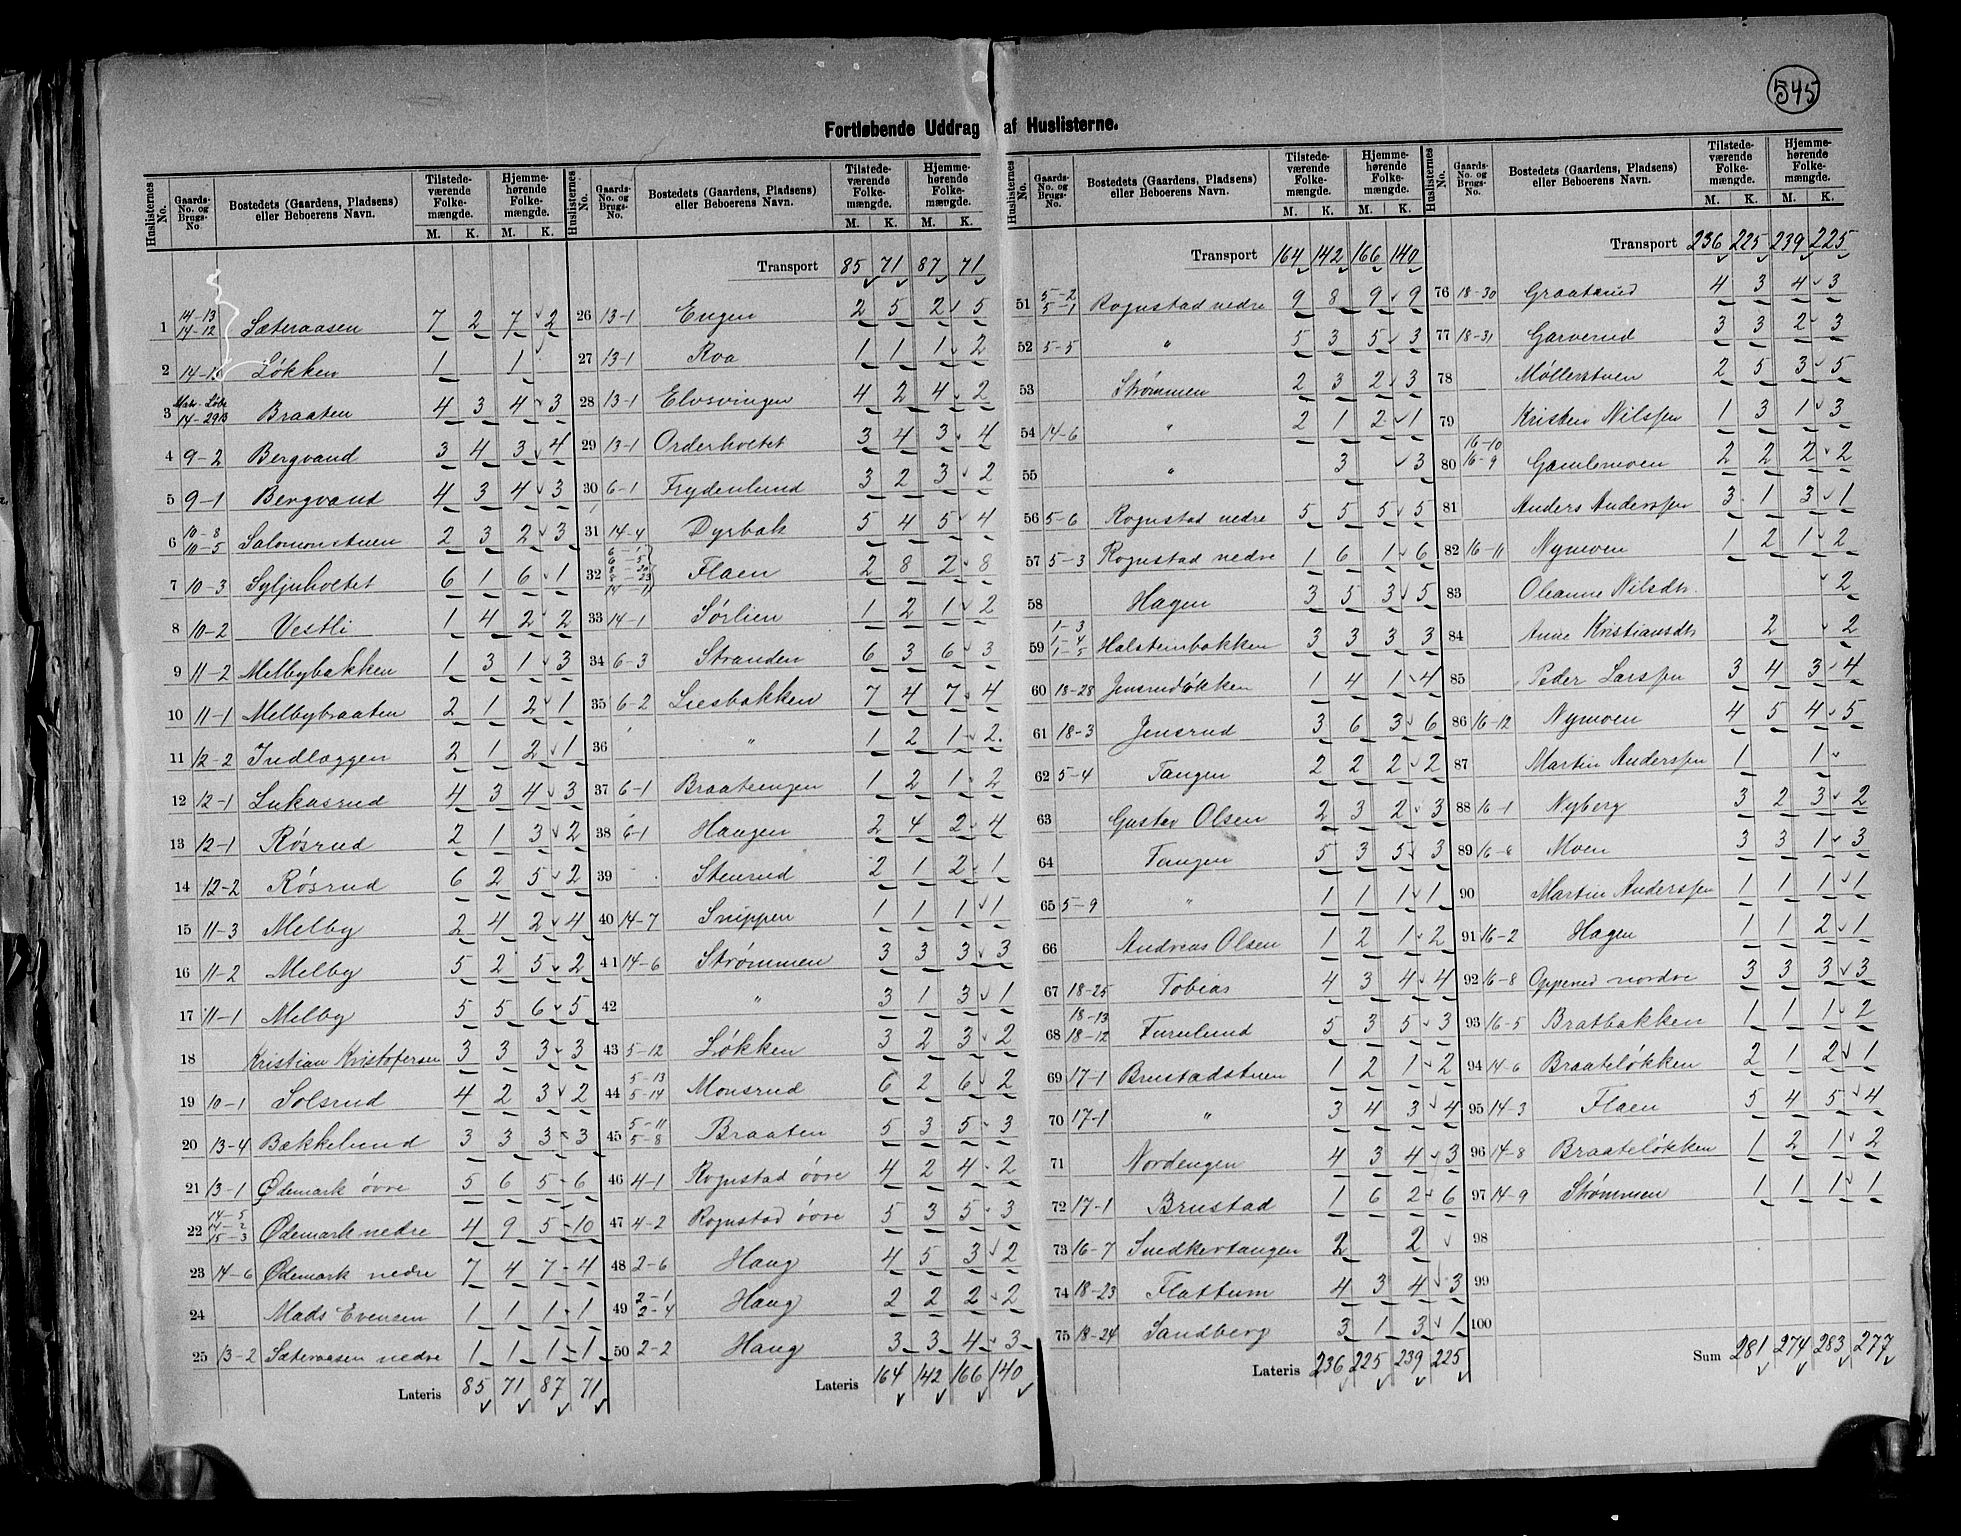 545
Fortløbende Uddrag af Huslisterne.
Huslisternes No. | Gaards-No. og Brugs-No | Bostedets (Gaardens, Pladsens) eller Beboerens Navn. | Tilstede-værende Folke-mængde. M. K. | Hjemme-hørende Folke-mængde. M. K.
1 14-13 14-12 Sæteraasen 7 2 7 2
2 Løkken 1 1
3 14-29B Braaten 4 3 4 3
4 9-2 Bergvand 3 4 3 4
5 9-1 Bergvand 4 3 4 3
6 10-8 10-5 Salomonstuen 2 3 2 3
7 10-3 Syljuholtet 6 1 6 1
8 10-2 Vestli 1 4 2 2
9 11-2 Melbybakken 1 3 1 3
10 11-1 Melbybraaten 2 1 2 1
11 12-2 Indlæggen 2 1 2 1
12 12-1 Lukasrud 4 3 4 3
13 12-1 Røsrud 2 1 3 2
14 12-2 Røsrud 6 2 5 2
15 11-3 Melby 2 4 2 4
16 11-2 Melby 5 2 5 2
17 11-1 Melby 5 5 6 5
18 Kristian Kristofersen 3 3 3 3
19 10-1 Solsrud 4 2 3 2
20 13-4 Bakkelund 3 3 3 3
21 13-1 Ødemark övre 5 6 5 6
22 14-5 14-2 15-3 Ødemark nedre 4 9 5 10
23 14-6 Ødemark nedre 7 4 7 4
24 Mads Evensen 1 1 1 1
25 13-2 Sæteraasen nedre 1 1 1 1
Lateris 85 71 87 71
Huslisternes No. | Gaards-No. og Brugs-No. | Bostedets (Gaardens, Pladsens) eller Beboerens Navn. | Tilstede-værende Folke-mængde. M. K. | Hjemme-hørende Folke-mængde. M. K.
Transport 85 71 87 71
26 13-1 Engen 2 5 2 5
27 13-1 Roa 1 1 1 2
28 13-1 Elvsvingen 4 2 4 2
29 13-1 Orderholtet 3 4 3 4
30 6-1 Frydenlund 3 2 3 2
31 14-4 Dyrbak 5 4 5 4
32 Flaen 2 8 2 8
33 14-1 Sørlien 1 2 1 2
34 6-3 Stranden 6 3 6 3
35 6-2 Liesbakken 7 4 7 4
36 " 1 2 1 2
37 6-1 Braatengen 1 2 1 2
38 6-1 Haugen 2 4 2 4
39 Stensrud 2 1 2 1
40 14-7 Snippen 1 1 1 1
41 14-6 Strømmen 3 3 3 3
42 " 3 1 3 1
43 5-12 Løkken 3 2 3 2
44 5-13 5-14 Monsrud 6 2 6 2
45 5-11 5-8 Braaten 5 3 5 3
46 4-1 Rognstad övre 4 2 4 2
47 4-2 Rognstad övre 5 3 5 3
48 2-6 Haug 4 5 3 2
49 2-1 2-4 Haug 2 2 2 2
50 2-2 Haug 3 3 4 3
Lateris 164 142 166 140
Huslisternes No. | Gaards-No. og Brugs-No. | Bostedets (Gaardens, Pladsens) eller Beboerens Navn. | Tilstede-værende Folke-mængde. M. K. | Hjemme-hørende Folke-mængde. M. K.
Transport 164 142 166 140
51 5-2 5-1 Rognstad nedre 9 8 9 9
52 5-5 " 5 3 5 3
53 Strømmen 2 3 2 3
54 14-6 " 2 1 2 1
55 " 3 3
56 5-6 Rognstad nedre 5 5 5 5
57 5-3 Rognstad nedre 1 6 1 6
58 Hagen 3 5 3 5
59 1-3 1-4 1-5 Halsteinbakken 3 3 3 3
60 18-28 Jensrudløkken 1 4 1 4
61 18-3 Jensrud 3 6 3 6
62 5-4 Tangen 2 2 2 2
63 Gustav Olsen 2 3 2 3
64 Tangen 5 3 5 3
65 5-9 " 1 1 1 1
66 Andreas Olsen 1 2 1 2
67 18-25 Tobias 4 3 4 4
68 18-13 18-12 Furulund 5 3 5 3
69 17-1 Brustadstuen 1 2 1 2
70 17-1 " 3 4 3 4
71 Nordengen 4 3 4 3
72 17-1 Brustad 1 6 2 6
73 16-7 Snedkertangen 2 2
74 18-23 Flattum 4 3 4 3
75 18-24 Sandberg 3 1 3 1
Lateris 236 225 239 225
Huslisternes No. | Gaards-No. og Brugs-No. | Bostedets (Gaardens, Pladsens) eller Beboerens Navn. | Tilstede-værende Folke-mængde. M. K. | Hjemme-hørende Folke-mængde. M. K.
Transport 236 225 239 225
76 18-30 Graatarud 4 3 4 3
77 18-31 Garverud 3 3 2 3
78 Møllerstuen 2 5 3 5
79 Kristen Nilssen 1 3 1 3
80 16-10 16-9 Gamlemoen 2 2 2 2
81 Anders Anderssen 3 1 3 1
82 16-11 Nymoen 1 2 1 2
83 Oleanne Nilsdtr. 2
84 Anne Kristiansdtr 2 2
85 Peder Larssen 3 4 3 4
86 16-12 Nymoen 4 5 4 5
87 Martin Anderssen 1 1
88 16-1 Nyberg 3 2 3 2
89 16-6 Moen 3 3 1 3
90 Martin Anderssen 1 1 1 1
91 16-2 Hagen 1 1 2 1
92 16-8 Opperud nordre 3 3 3 3
93 16-5 Bratbakken 1 1 1 2
94 14-6 Braateløkken 2 1 2 1
95 14-3 Flaen 5 4 5 4
96 14-8 Braateløkken 1 2 1 2
97 14-9 Strømmen 1 1 1 1
98
99
100
Sum 281 274 283 277